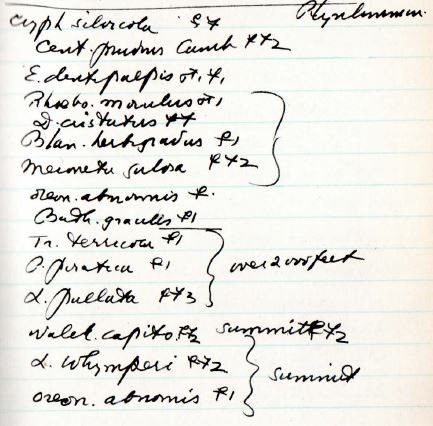 Cryph. silvicola ♀♀
Cent. prudens Camb ♀♀2
E. dentipalpis ♂1 ♀1
Rhaebo. morulus ♂1
D. cristatus ♀♀
Blan. herbigradus ♀1
Meioneta gulosa ♀♀2
oreon. abnormis ♀.
Bath. gracilis ♀1
Tr. terricola ♀1
P. piratica ♀1
over 2000 feet
L. pullata ♀♀3
Walck. capito ♀2 summit ♀♀2
L. Whymperi ♀♀2
summit
oreon. abnormis ♀1